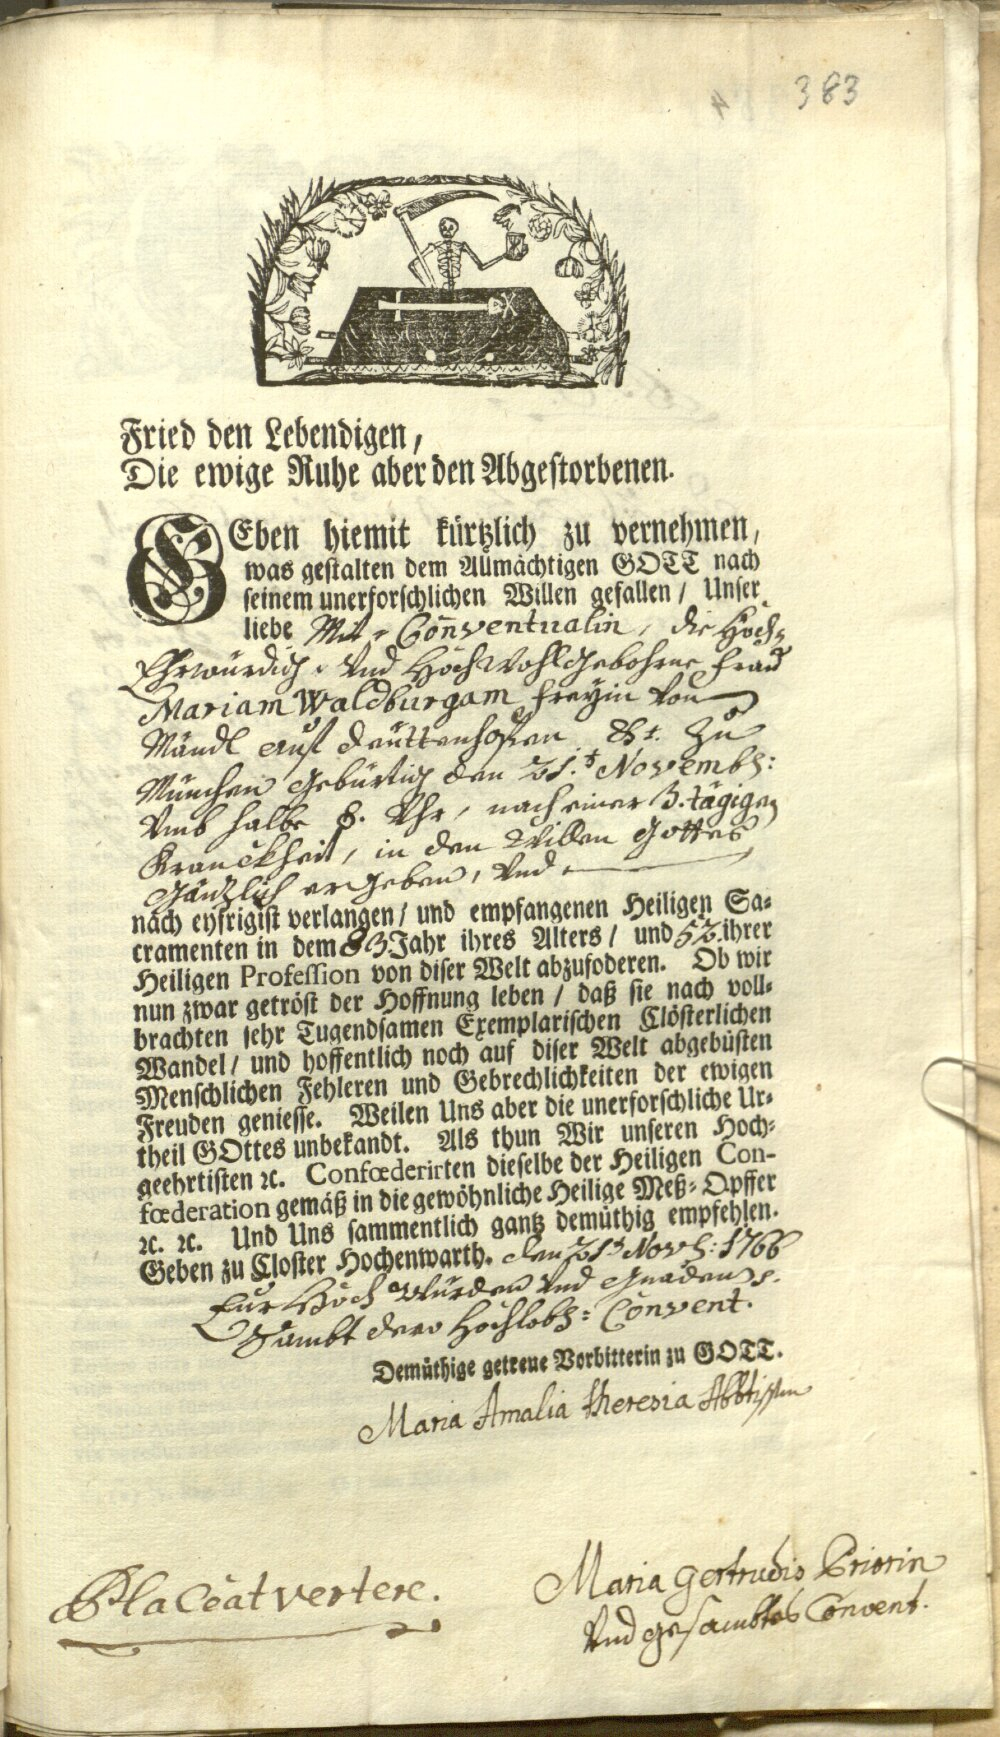 383
Fried den Lebendigen,
Die ewige Ruhe aber den Abgestorbenen.
GEben hiemit kürtzlich zu vernehmen,
was gestalten dem Allmächtigen GOTT nach
seinem unerforschlichen Willen gefallen / Unser
liebe Mit-Conventualin, die Hoch-
Ehrwürdig- Und HochWohlGebohrne Frau
Mariam Waldburgam Freyin Von
Mändl auf Deüttenhofen &t. Zu
München Gebürtig den 21.t Novemb:
Umb halbe 8. Uhr, nach einer 3.tägigen
Kranckheit, in den Willen Gottes
Gäntzlich ergeben, Und
nach eyfrigist verlangen / und empfangenen Heiligen Sa-
cramenten in dem 83 Jahr ihres Alters / und 52. ihrer
Heiligen Profession von diser Welt abzufoderen. Ob wir
nun zwar getröst der Hoffnung leben / daß sie nach voll-
brachten sehr Tugendsamen Exemplarischen Clösterlichen
Wandel / und hoffentlich noch auf diser Welt abgebüsten
Menschlichen Fehleren und Gebrechlichkeiten der ewigen
Freuden geniesse. Weilen Uns aber die unerforschliche Ur-
theil GOttes unbekandt. Als thun Wir unseren Hoch-
geehrtisten ꝛc. Confœderirten dieselbe der Heiligen Con-
fœderation gemäß in die gewöhnliche Heilige Meß-Opffer
ꝛc. ꝛc. Und Uns sammentlich gantz demüthig empfehlen.
Geben zu Closter Hochenwarth. den 21t Novb: 1766
Eur Hoch Würden Und Gnaden
Sambt dero Hochlobl: Convent.
Demüthige getreue Vorbitterin zu GOTT.
Maria Amalia Theresia Abbtissin
Maria Gertrudis Priorin
Und gesambtes Convent.
Placeat vertere.